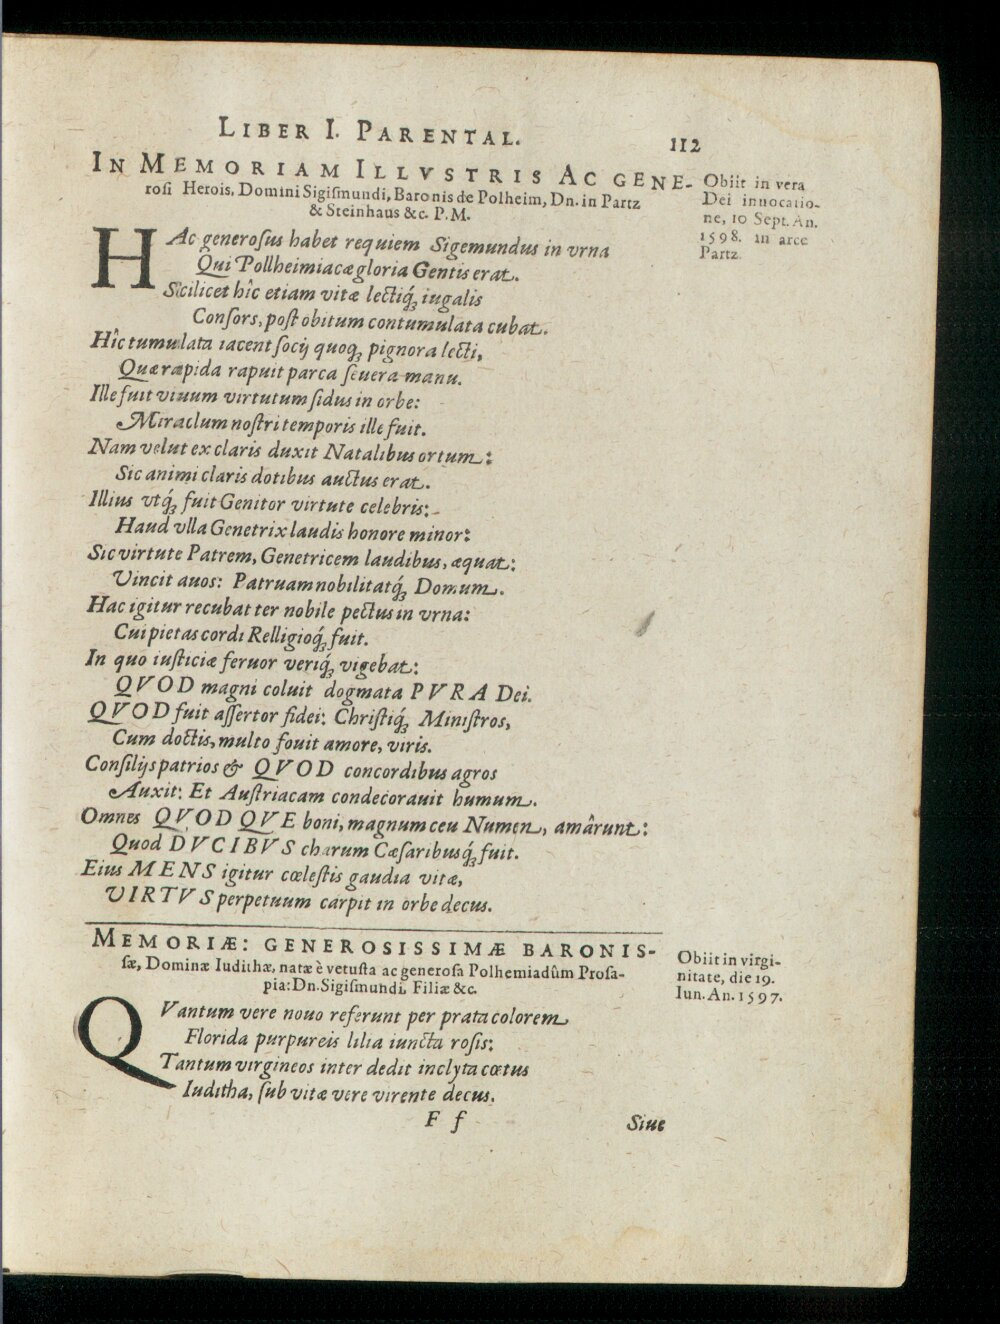 LIBER I. PARENTAL. 112
IN MEMORIAM ILLVSTRIS AC GENE-
roſi Herois, Domini Sigiſmundi, Baronis de Polheim, Dn. in Partz
& Steinhaus &c. P. M.
Obiit in vera
Dei inuocatio-
ne, 10 Sept. An.
1598. in arce
Partz.
HAc generoſus habet requiem Sigemundus in vrna
Qui Pollheimiacæ gloria Gentis erat.
Scilicet hîc etiam vitæ lectiq́ꝫ iugalis
Conſors, poſt obitum contumulata cubat.
Hîc tumulata iacent ſocij quoqꝫ pignora lecti,
Quæ rapida rapuit parca ſeuera manu.
Ille fuit viuum virtutum ſidus in orbe:
Miraclum noſtri temporis ille fuit.
Nam velut ex claris duxit Natalibus ortum:
Sic animi claris dotibus auctus erat.
Illius vtq́ꝫ fuit Genitor virtute celebris:
Haud vlla Genetrix laudis honore minor:
Sic virtute Patrem, Genetricem laudibus, æquat:
Vincit auos: Patruam nobilitatq́ꝫ Domum.
Hac igitur recubat ter nobile pectus in vrna:
Cui pietas cordi Relligioq́ꝫ fuit.
In quo iuſticiæ feruor veriq́ꝫ vigebat:
QVOD magni coluit dogmata PVRA Dei.
QVOD fuit aſſertor fidei: Chriſtiq́ꝫ Miniſtros,
Cum doctis, multo fouit amore, viris.
Conſilijs patrios & QVOD concordibus agros
Auxit: Et Auſtriacam condecorauit humum.
Omnes QVOD QVE boni, magnum ceu Numen, amârunt:
Quod DVCIBVS charum Cæſaribusq́ꝫ fuit.
Eius MENS igitur cœleſtis gaudia vitæ,
VIRTVS perpetuum carpit in orbe decus.
MEMORIÆ: GENEROSISSIMÆ BARONIS-
ſæ, Dominæ Iudithæ, natæ è vetuſta ac generoſa Polhemiadûm Proſa-
pia: Dn. Sigiſmundi, Filiæ &c.
Obiit in virgi-
nitate, die 19.
Iun. An. 1597.
QVantum vere nouo referunt per prata colorem
Florida purpureis lilia iuncta roſis:
Tantum virgineos inter dedit inclyta cœtus
Iuditha, ſub vitæ vere virente decus.
F f Siue